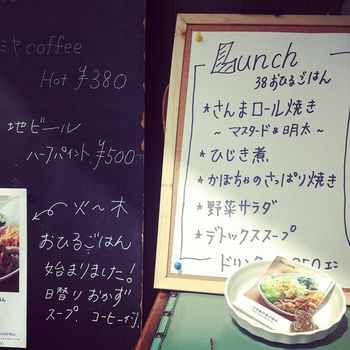 ミヤ coffee
Hot ¥380
地ビール
ハーフパイント ¥500
火〜木
おひるごはん
始まりました!
日替り おかず
スープ、コーヒー付
Lunch
38おひるごはん
*さんまロール焼き
〜マスタード&明太〜
*ひじき煮
*かぼちゃのさっぱり焼き
*野菜サラダ
*デトックススープ
ドリンク